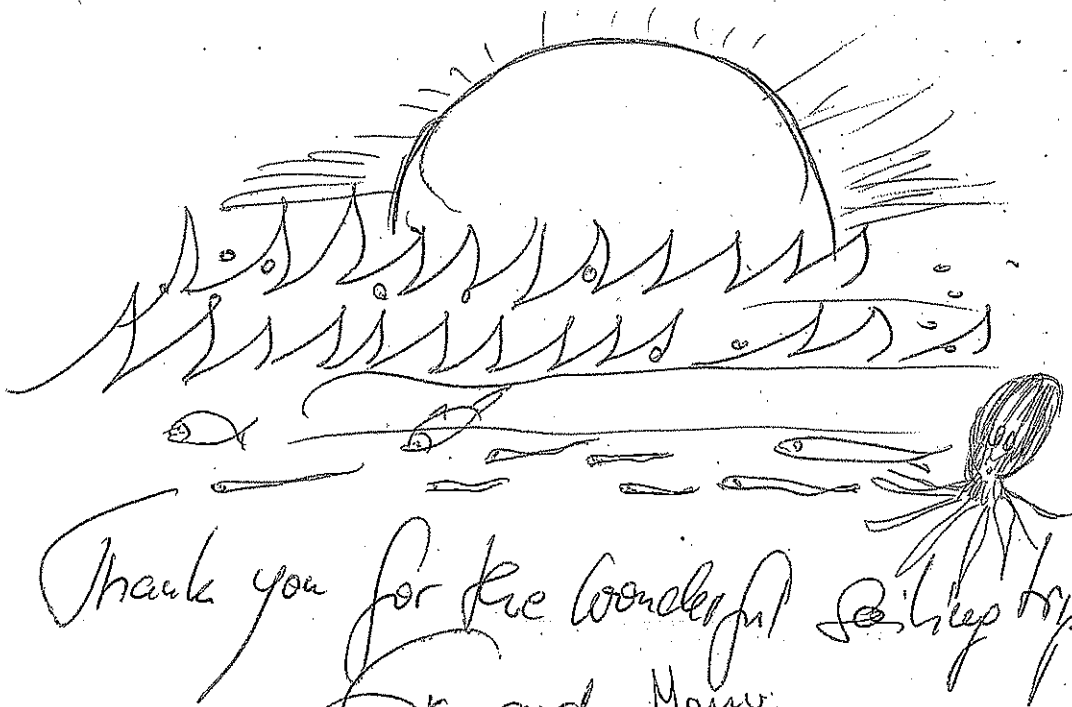 Thank you for the wonderful sailing trip
and